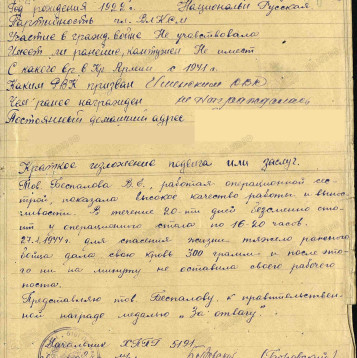 Год рождения 1922 г. Национальн Русская
Партийность чл. ВЛКСМ
Участие в гражд. войне Не участвовала
Имеет ли ранение, контузию Не имеет
С какого вр. в Кр Армии с 1941 г.
Каким РВК призван
Чем ранее награжден не награждалась
Постоянный домашний адрес
Краткое изложение подвига или заслуг.
Тов Беспалова В.С., работая операционной сес-
трой, показала высокое качество работы и вынос-
ливости. В течение 20-ти дней бессменно стоит
у операционного стола по 16-20 часов.
27.1.1944 г. для спасения жизни тяжело раненого
бойца дала свою кровь 300 грамм и после это-
го ни на минуту не оставила своего рабочего
поста.
Представляю тов. Беспалову к правительствен-
ной награде медалью "За отвагу".
Начальник ХППГ 5191